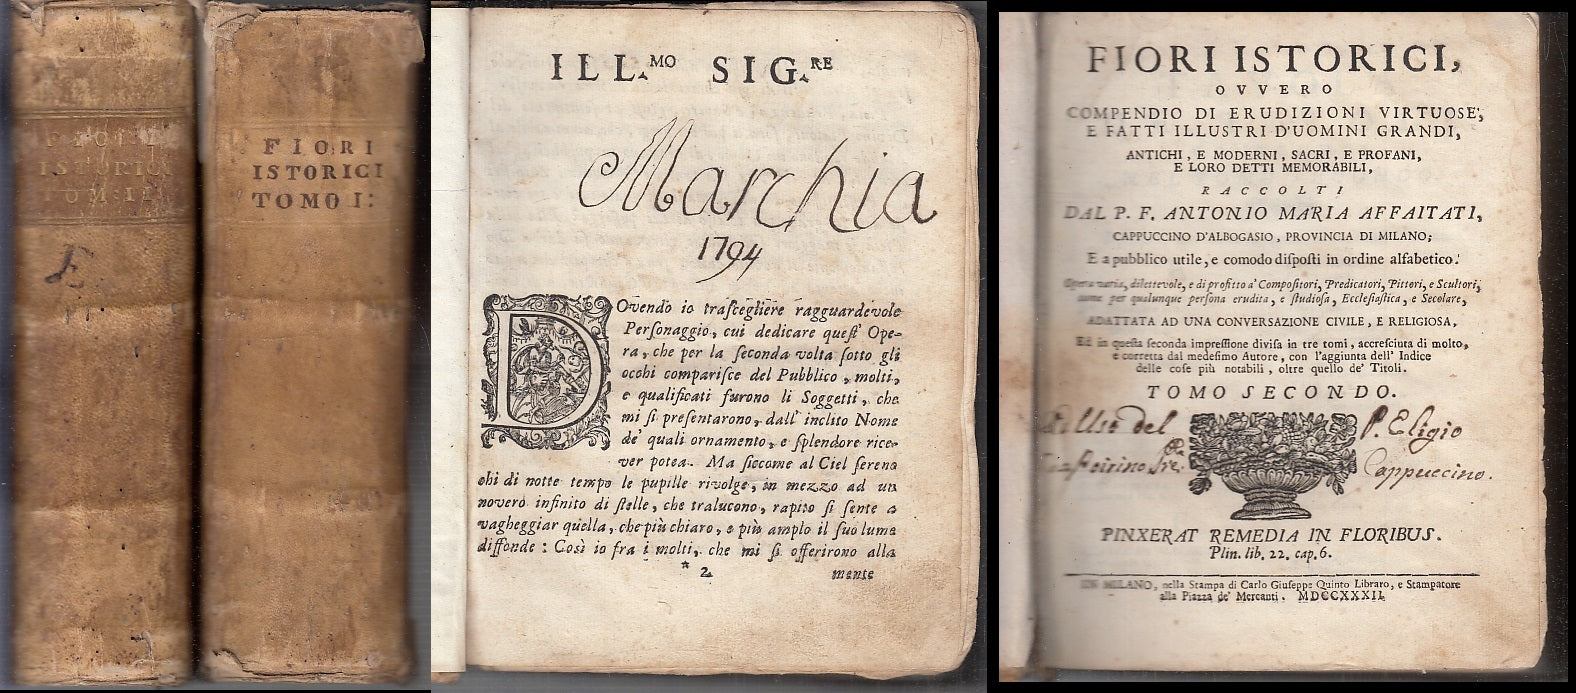 FIORI
ISTORICI
TOM. II
FIORI
ISTORICI
TOMO I:
ILL.MO SIG.RE
Marchia
1794
DOvendo io traſcegliere ragguardevole
Perſonaggio, cui dedicare queſt' Ope-
ra, che per la ſeconda volta ſotto gli
occhi compariſce del Pubblico, molti,
e qualificati furono li Soggetti, che
mi ſi preſentarono, dall' inclito Nome
de' quali ornamento, e ſplendore rice-
ver potea. Ma ſiccome al Ciel ſereno
chi di notte tempo le pupille rivolge, in mezzo ad un
novero infinito di ſtelle, che tralucono, rapito ſi ſente a
vagheggiar quella, che più chiaro, e più amplo il ſuo lume
diffonde: Così io fra i molti, che mi ſi offerirono alla
* 2 mente
FIORI ISTORICI,
OVVERO
COMPENDIO DI ERUDIZIONI VIRTUOSE,
E FATTI ILLUSTRI D'UOMINI GRANDI,
ANTICHI, E MODERNI, SACRI, E PROFANI,
E LORO DETTI MEMORABILI,
RACCOLTI
DAL P. F. ANTONIO MARIA AFFAITATI,
CAPPUCCINO D'ALBOGASIO, PROVINCIA DI MILANO;
E a pubblico utile, e comodo diſpoſti in ordine alfabetico.
Opera varia, dilettevole, e di profitto a' Compoſitori, Predicatori, Pittori, e Scultori,
come per qualunque perſona erudita, e ſtudioſa, Eccleſiaſtica, e Secolare,
ADATTATA AD UNA CONVERSAZIONE CIVILE, E RELIGIOSA,
Ed in queſta ſeconda impreſſione diviſa in tre tomi, accreſciuta di molto,
e corretta dal medeſimo Autore, con l'aggiunta dell' Indice
delle coſe più notabili, oltre quello de' Titoli.
TOMO SECONDO.
Uso del P. Eligio
Cappuccino.
PINXERAT REMEDIA IN FLORIBUS.
Plin. lib. 22. cap. 6.
IN MILANO, nella Stampa di Carlo Giuſeppe Quinto Libraro, e Stampatore
alla Piazza de' Mercanti. MDCCXXXII.